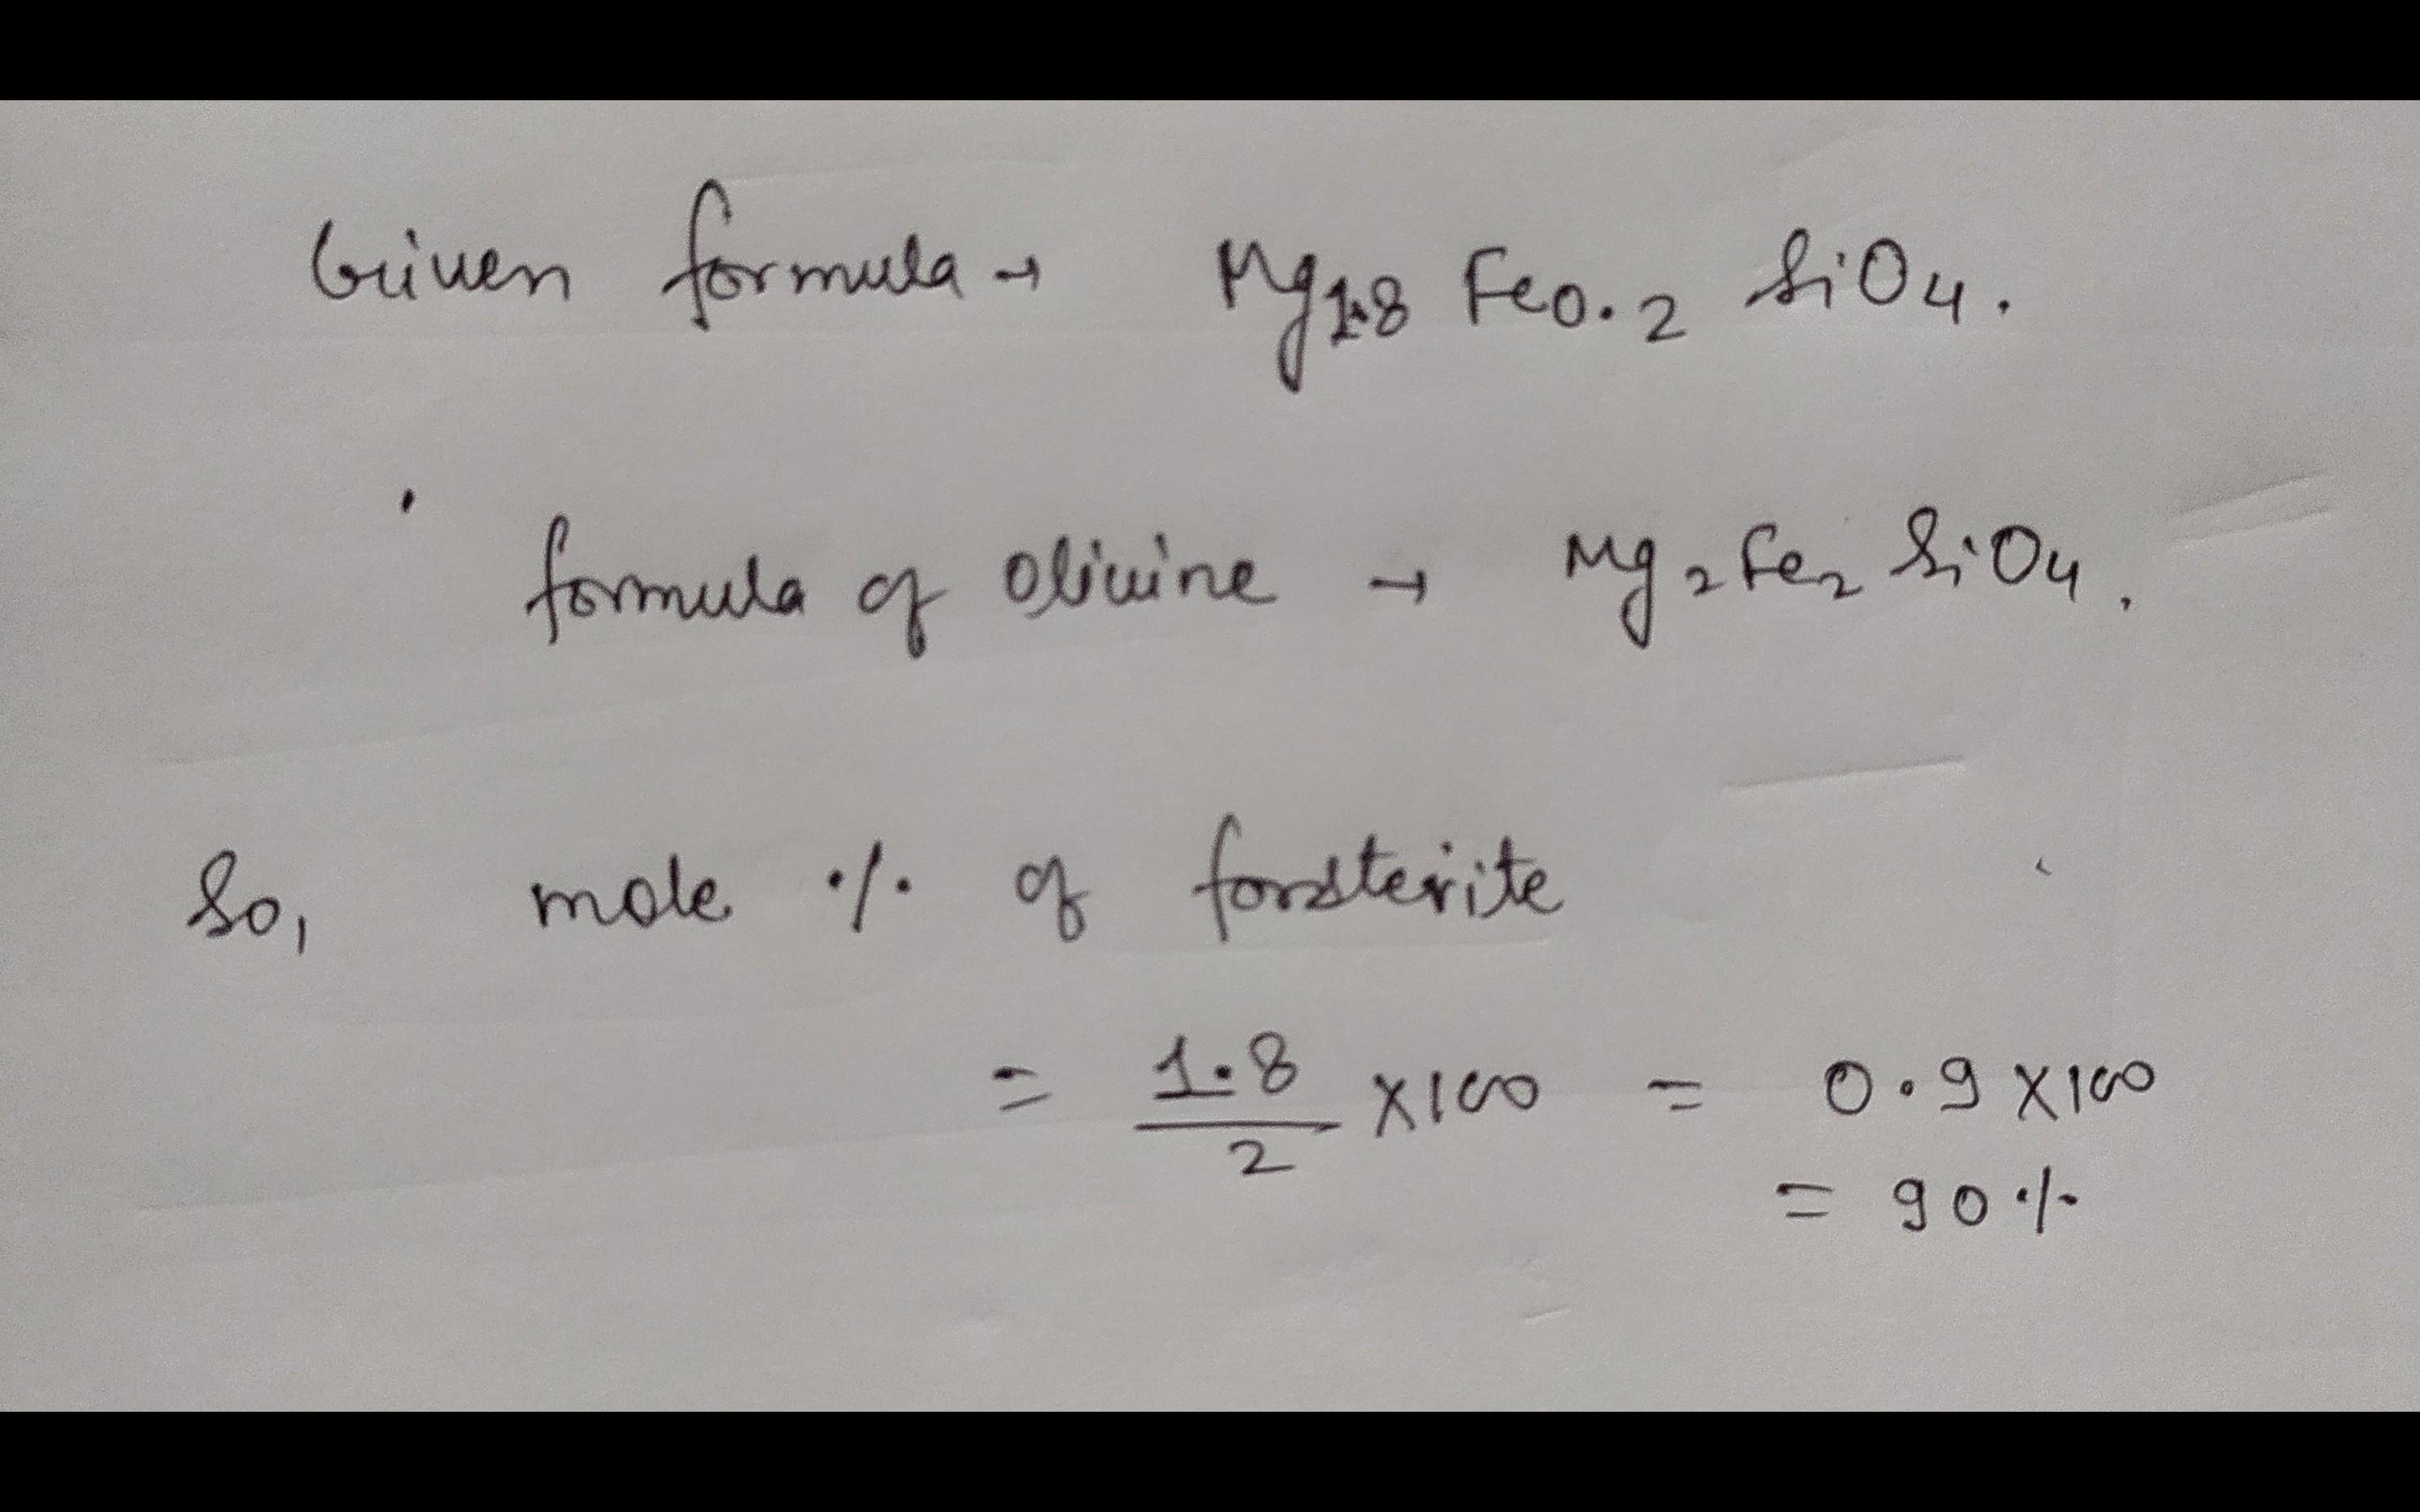 Given formula → Mg1.8 Fe0.2 SiO4.
formula of olivine → Mg2Fe2 SiO4.
So, mole % of forsterite
= 1.8/2 ×100 = 0.9 ×100
= 90%